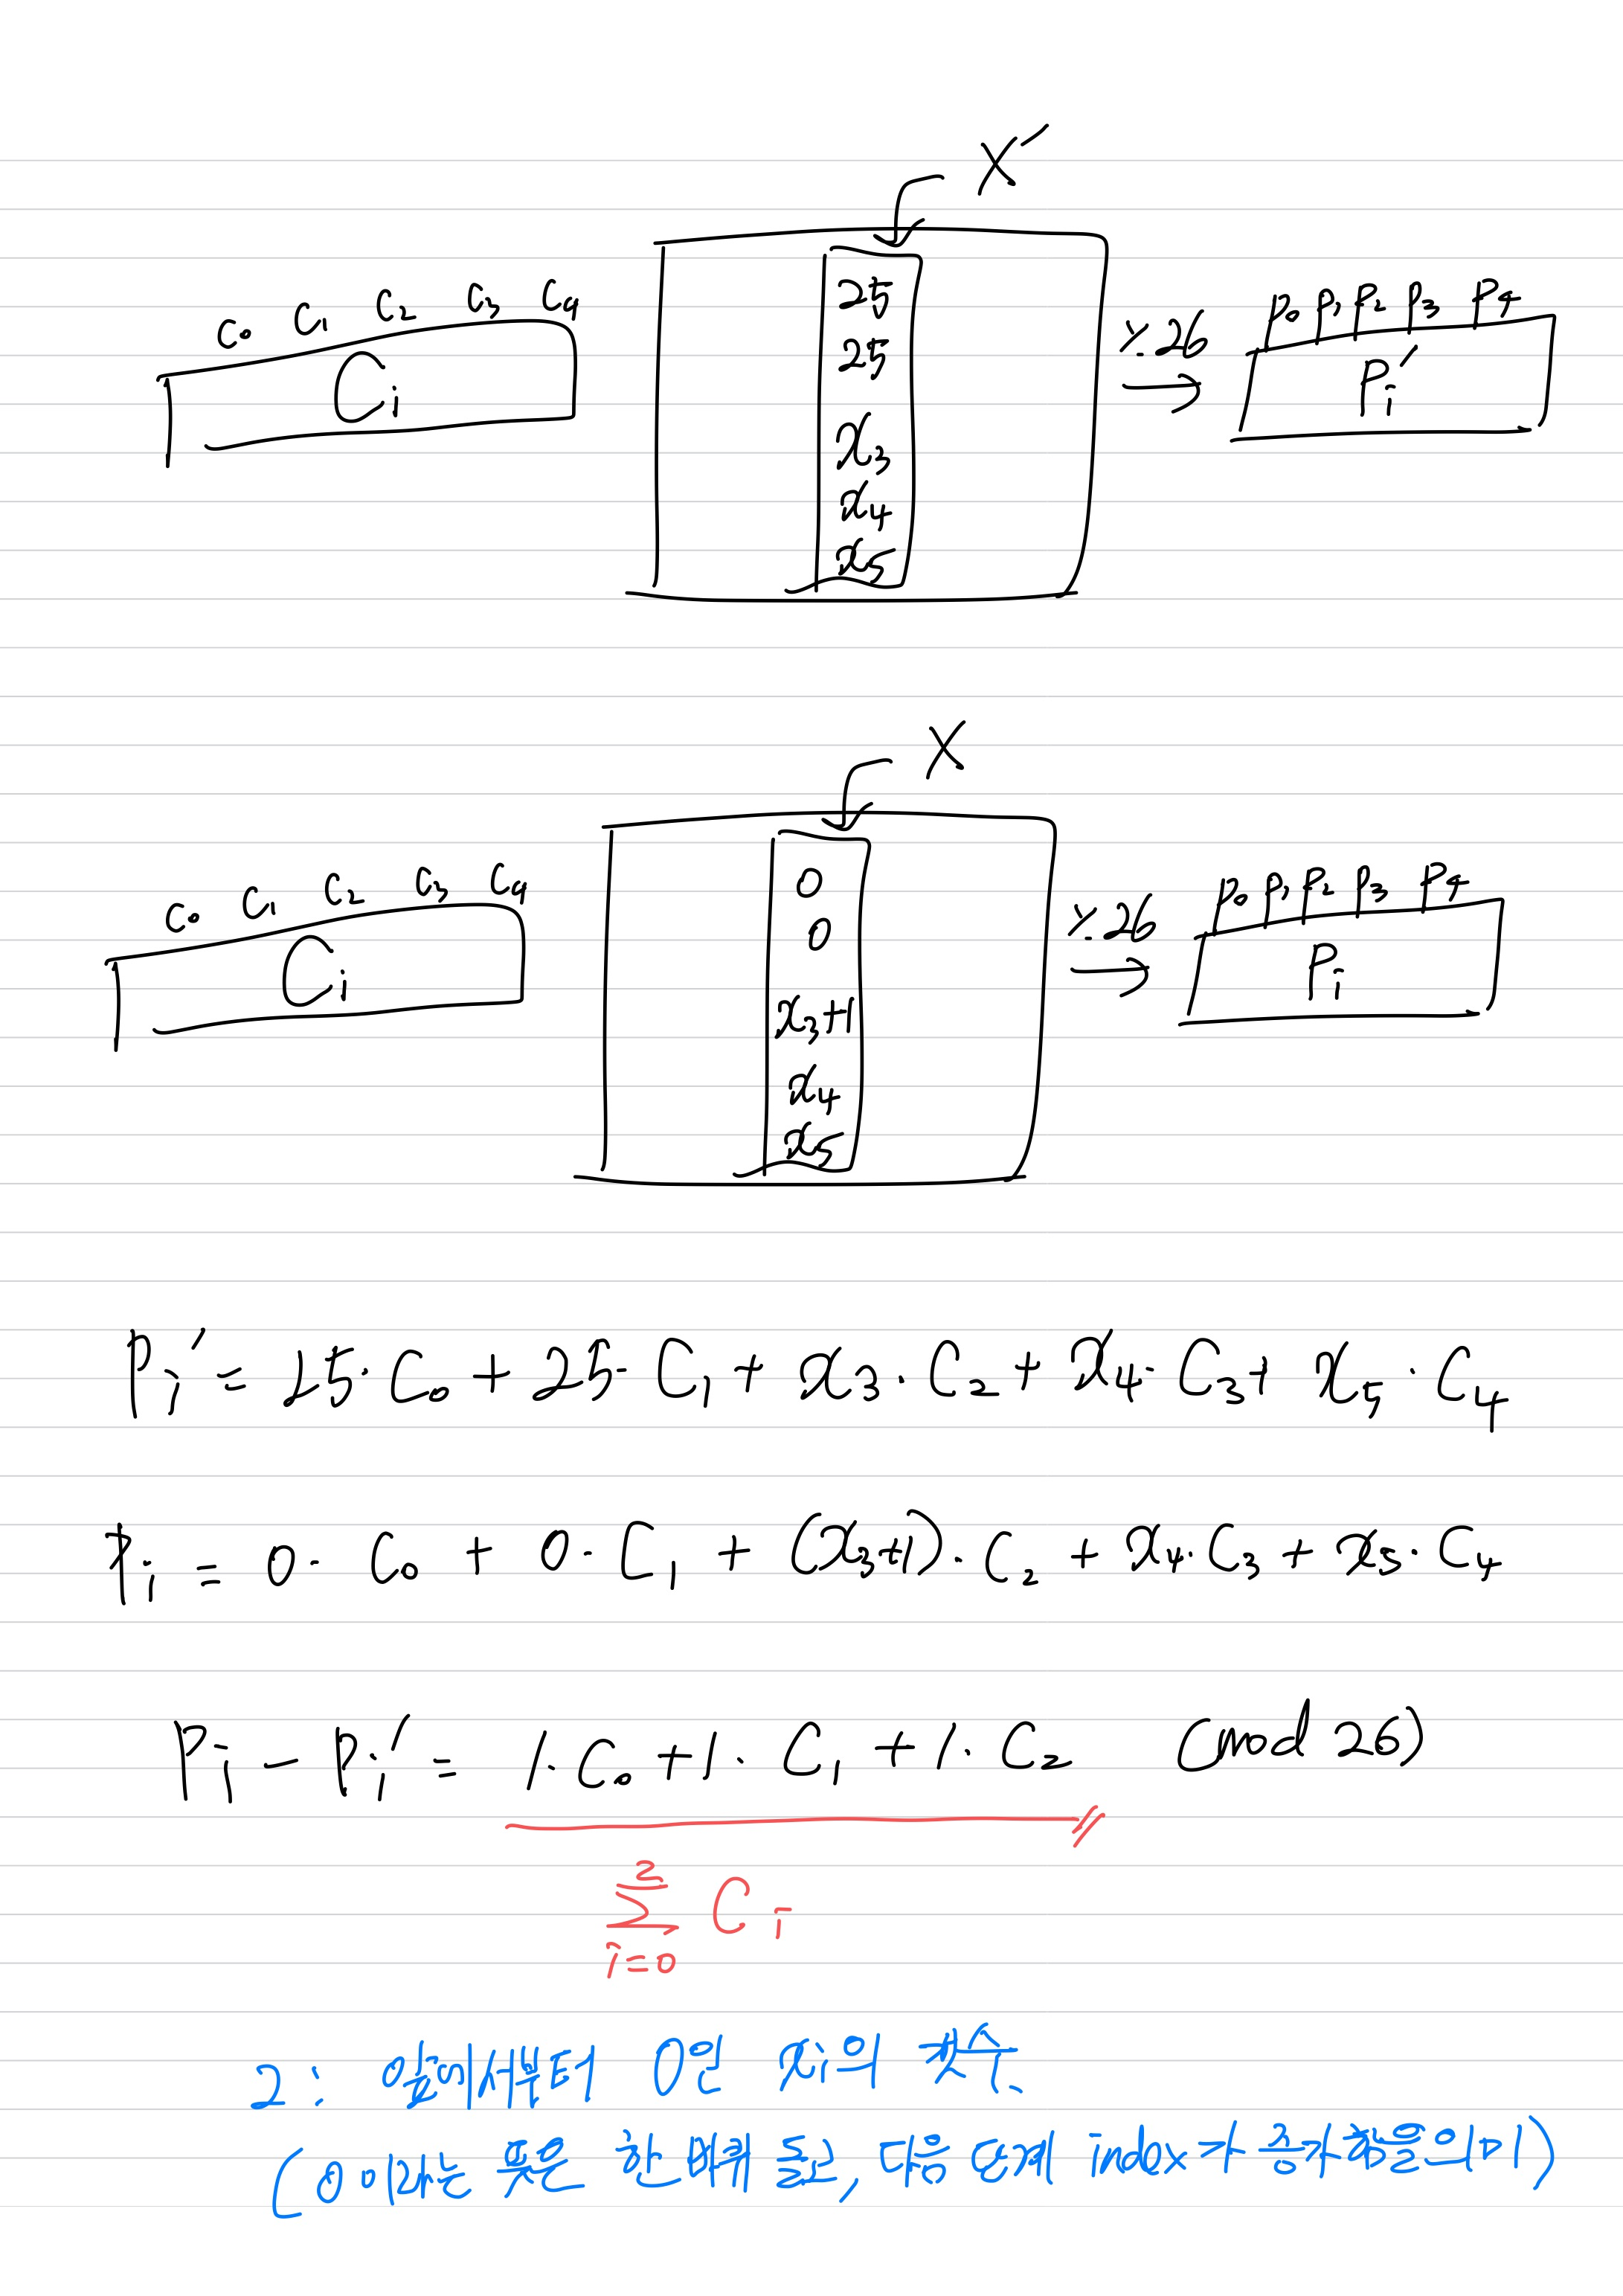 X′
C₀ C₁ C₂ C₃ C₄
Cᵢ
25
25
x₃
x₄
x₅
%26
⇒
P₀ P₁ P₂ P₃ P₄
Pᵢ′
X
C₀ C₁ C₂ C₃ C₄
Cᵢ
0
0
x₃+1
x₄
x₅
%26
⇒
P₀ P₁ P₂ P₃ P₄
Pᵢ
Pᵢ′ = 25·C₀ + 25·C₁ + x₃·C₂ + x₄·C₃ + x₅·C₄
Pᵢ = 0·C₀ + 0·C₁ + (x₃+1)·C₂ + x₄·C₃ + x₅·C₄
Pᵢ − Pᵢ′ = 1·C₀ + 1·C₁ + 1·C₂ (mod 26)
2
∑ Cᵢ
i=0
2: 앞에서부터 0인 xᵢ의 갯수.
(0이라는 뜻은 한 바퀴 돌고, 다음 단계 index가 증가함을 의미)